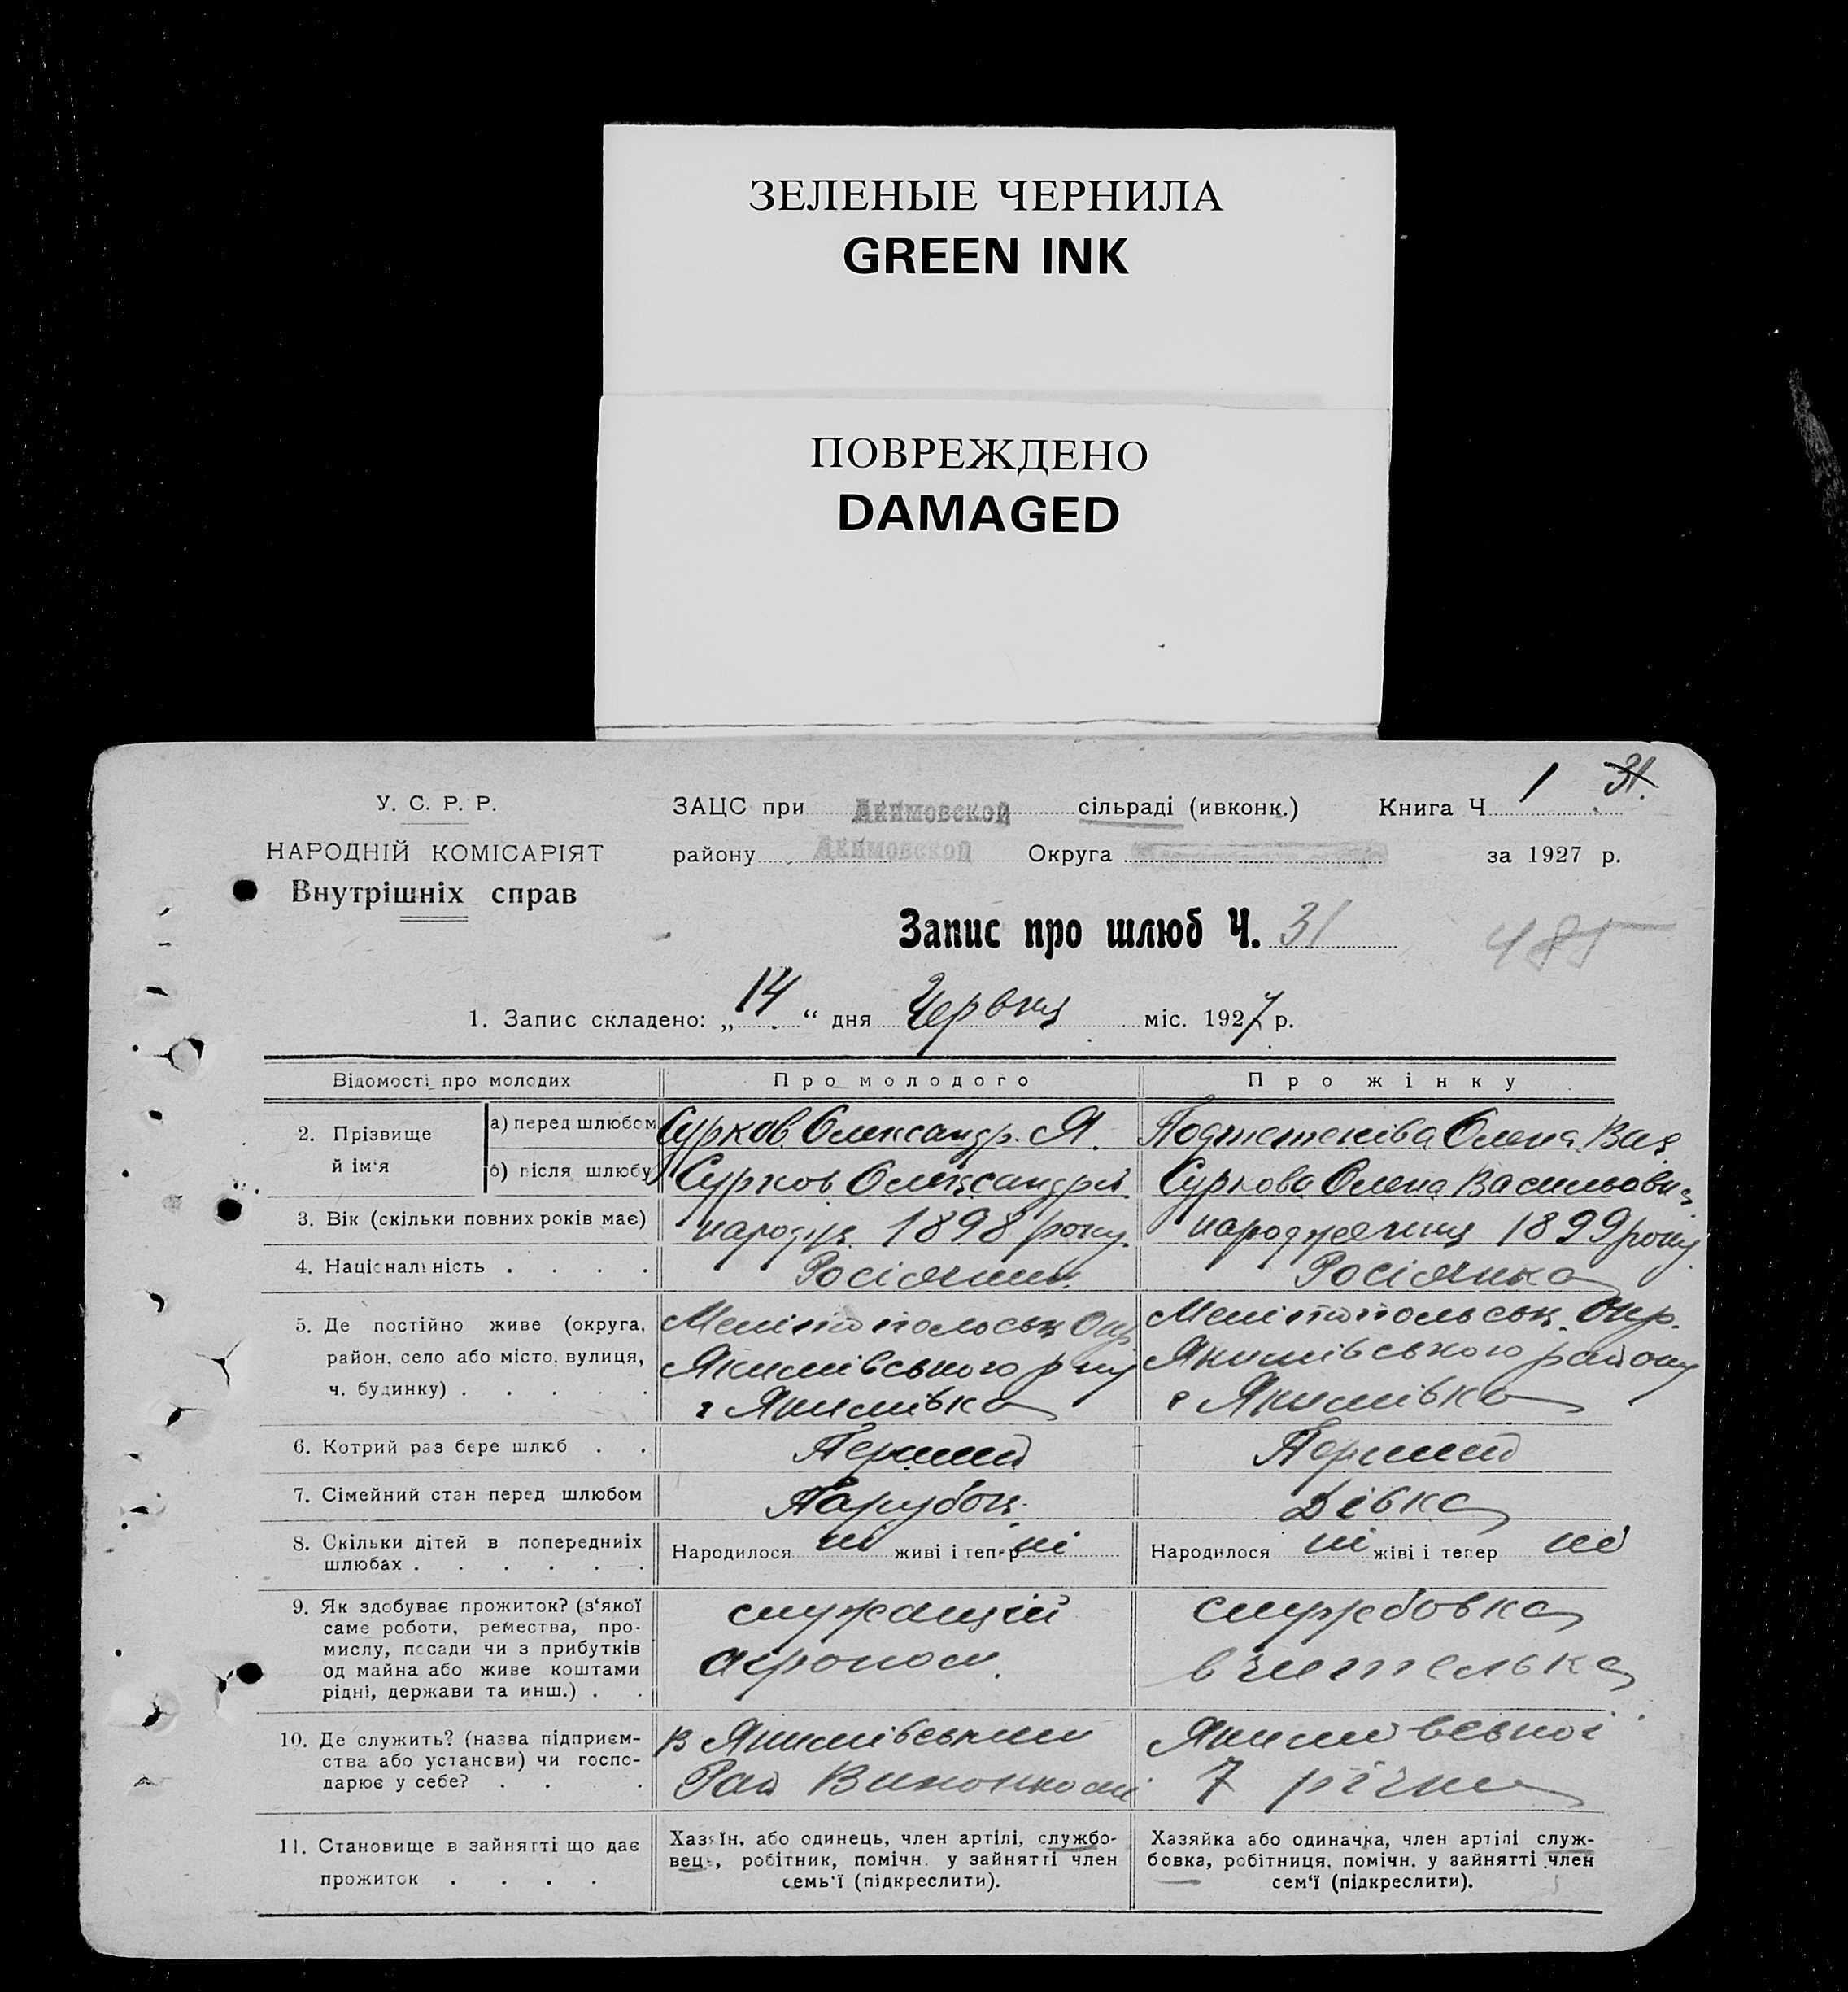 ЗЕЛЕНЫЕ ЧЕРНИЛА
GREEN INK
ПОВРЕЖДЕНО
DAMAGED
1 31.
У. С. Р. Р.
ЗАЦС при Акимовской сільраді (ивконк.) Книга Ч
НАРОДНІЙ КОМІСАРІЯТ
району Акимовской Округа за 1927 р.
Внутрішніх справ
Запис про шлюб Ч. 31
485
1. Запис складено: „14“ дня Червня міс. 1927 р.
Відомості про молодих Про молодого Про жінку
2. Прізвище й ім'я
а) перед шлюбом Сурков Олександр. Я. Олена Вас
б) після шлюбу Сурков Олександр Суркова Олена Васильовн
3. Вік (скільки повних років має) народж. 1898 року. народження 1899 року
4. Національність . . . . Росіянин Росіянка
5. Де постійно живе (округа, Мелітопольськ Окр Мелітопольськ. Окр.
район, село або місто, вулиця, Якимівського р-ну Якимівського району
ч. будинку) . . . . . Якимівка Якимівка
6. Котрий раз бере шлюб . . Перший Перший
7. Сімейний стан перед шлюбом Парубок Дівка
8. Скільки дітей в попередниіх
шлюбах . . . . . . Народилося ні живі і тепер ні Народилося ні жіві і тепер ні
9. Як здобуває прожиток? (з'якої
саме роботи, ремества, про-
мислу, посади чи з прибутків
од майна або живе коштами
рідні, держави та инш.) . .
служащий
агроном.
службовка
вчителька
10. Де служить? (назва підприєм-
ства або установи) чи госпо-
дарює у себе? . . .
в Якимівським
Рай Виконкомі
Якимовської
7 річна
11. Становище в зайнятті що дає
прожиток . . . .
Хазяїн, або одинець, член артілі, службо-
вець, робітник, помічн. у зайнятті член
семь'ї (підкреслити).
Хазяйка або одиначка, член артілі служ-
бовка, робітниця, помічн. у зайнятті член
сем'ї (підкреслити).